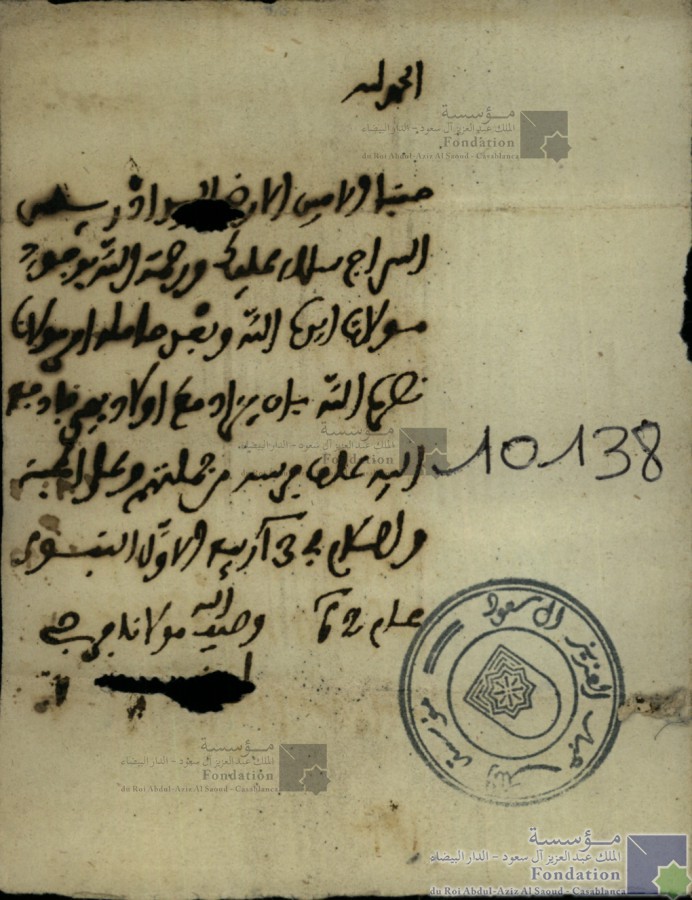 الحمد لله
مؤسسة
الملك عبد العزيز آل سعود - الدار البيضاء
Fondation
du Roi Abdul-Aziz Al Saoud - Casablanca
محبنا الامين الارضى السيد ادريس
السراج سلام عليك ورحمة الله بوجود
مولانا ايده الله وبعد حامله امر مولانا
نصره الله بان يزاد مع اولاد
مؤسسة
الملك عبد العزيز آل سعود - الدار البيضاء
Fondation
du Roi Abdul-Aziz Al Saoud - Casablanca
اليه من جملتهم وعلى المحبة
10138
والسلام في 3 ربيع الاول النبوي
عام
وصيف مولانا
مؤسسة الملك عبد العزيز آل سعود
مؤسسة
الملك عبد العزيز آل سعود - الدار البيضاء
Fondation
du Roi Abdul-Aziz Al Saoud - Casablanca
مؤسسة
الملك عبد العزيز آل سعود - الدار البيضاء
Fondation
du Roi Abdul-Aziz Al Saoud - Casablanca